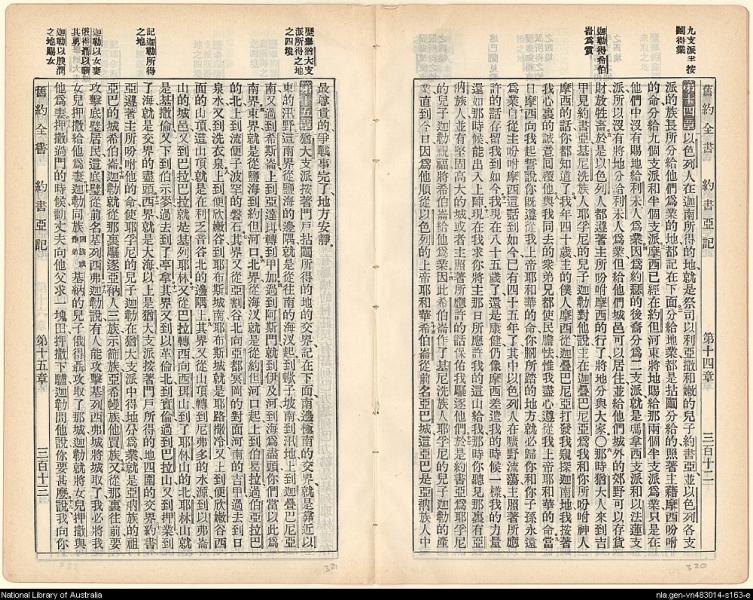 九支派 按
鬮得業
迦勒得希伯
崙爲賞
舊約全書 約書亞記 第十四章 三百十二
第十四章 以色列人在迦南所得的地就是祭司以利亞撒和嫩的兒子約書亞並以色列各支
派的族長所分給他們爲業的地都記在下面分給地業都是拈鬮分給的照著主藉摩西所吩咐
的命分給九個支派和半個支派摩西已經在約但河東將地賜給那兩個半支派爲業只是在
他們中沒有賜地給利未人爲業因爲約瑟的後裔分爲二支派就是瑪拿西支派和以法蓮支
派所以沒有將地分給利未人爲業但給他們城邑可以居住並給他們城外的郊野可以存貨
財放牲畜於是以色列人都遵著主所吩咐摩西的行了將地分與大家〇那時猶大人來到吉
甲見約書亞基尼洗族人耶孚尼的兒子迦勒對他說主在迦疊巴尼亞爲我和你所吩咐神人
摩西的話你都知道了我年四十歲主的僕人摩西從迦疊巴尼亞打發我窺探迦南地我按著
我心裏的誠實回覆他與我同去的衆弟兄都使民膽怯惟我盡心遵從我上帝耶和華的命當
日摩西向我起誓說你旣遵從我上帝耶和華的命你脚所踏的地方就必歸你和你子孫永遠
爲業自從主吩咐摩西這話到如今已有四十五年了其中以色列人在曠野流蕩主照著所應
許的話存留我到如今我現在八十五歲了還是康健仍像摩西差遣我的時候一樣我的力量
還如那時候能出入上陣現在我求你將主那日所應許我的這山給我那時你聽見那裏有亞
衲族人並有堅固高大的城或者主照著所應許的話保佑我驅逐他們於是約書亞爲耶孚尼
的兒子迦勒祝福將希伯崙給他爲業因此希伯崙作了基尼洗族人耶孚尼的兒子迦勒的產
業直到今日因爲他順從以色列的上帝耶和華希伯崙從前名亞巴城這亞巴是亞衲族人中
320
歷舉猶大支
派所得之地
之四境
記迦勒所得
之地
迦勒以女妻
俄得聶以酬
其勇
迦勒以股潤
之地賜女
最尊貴的爭戰事完了地方安靜
第十五章 猶大支派按著門戶拈鬮所得的地的交界記在下面南邊極南的交界就是靠近以
東的汛野這南界從鹽海的邊隅就是從往南的海汊起到蠍子坡南到汛地上到迦疊巴尼亞
南又過到希斯崙上到亞達珥轉到甲加過到阿斯門就到伊及河到海爲盡頭你們當以此爲
南界東界就是從鹽海到約但河口北界從海汊就是從約但河口起上到伯曷拉過伯亞拉巴
的北上到流便子波罕的磐石其界又從亞割谷北向亞都冥岡的對面河南的吉甲過去到日
泉水又到洗衣泉上到便欣嫩谷到耶布斯城南耶布斯城就是耶路撒冷又上到便欣嫩谷西
面的山頂這山頂就是在利乏音谷北的邊隅上其界又從山頂轉到尼弗多的水源到以弗崙
山的城邑又到巴拉巴拉就是基列耶琳又從巴拉轉西向西珥山到了耶琳山的北耶琳山就
是基撒倫又下到伯示麥過去到了亭拿其界又到以革倫北到實基倫過到巴拉山又到押業到
了海就是交界的盡頭西界就是大海以上是猶大支派按著門戶所得的地四圍的交界約書
亞遵著主所吩咐他的命使耶孚尼的兒子迦勒在猶大支派中得地分爲業就是亞衲族的祖
亞巴的城希伯崙迦勒就從那裏驅逐亞衲人三族示篩族亞希幔族他買族又從那裏往前要
攻擊底璧居民這底璧從前名基列西弗迦勒說有人能攻擊基列西弗城將城取了我必將我
女兒押撒給他爲妻迦勒同族基納的兒子俄得聶攻取了那城迦勒就將女兒押撒與
他爲妻押撒過門的時候勸丈夫向他父求一塊田押撒下驢迦勒問他說你要甚麼說我向你
舊約全書 約書亞記 第十五章 三百十三
321
National Library of Australia
nla.gen-vn483014-s163-e